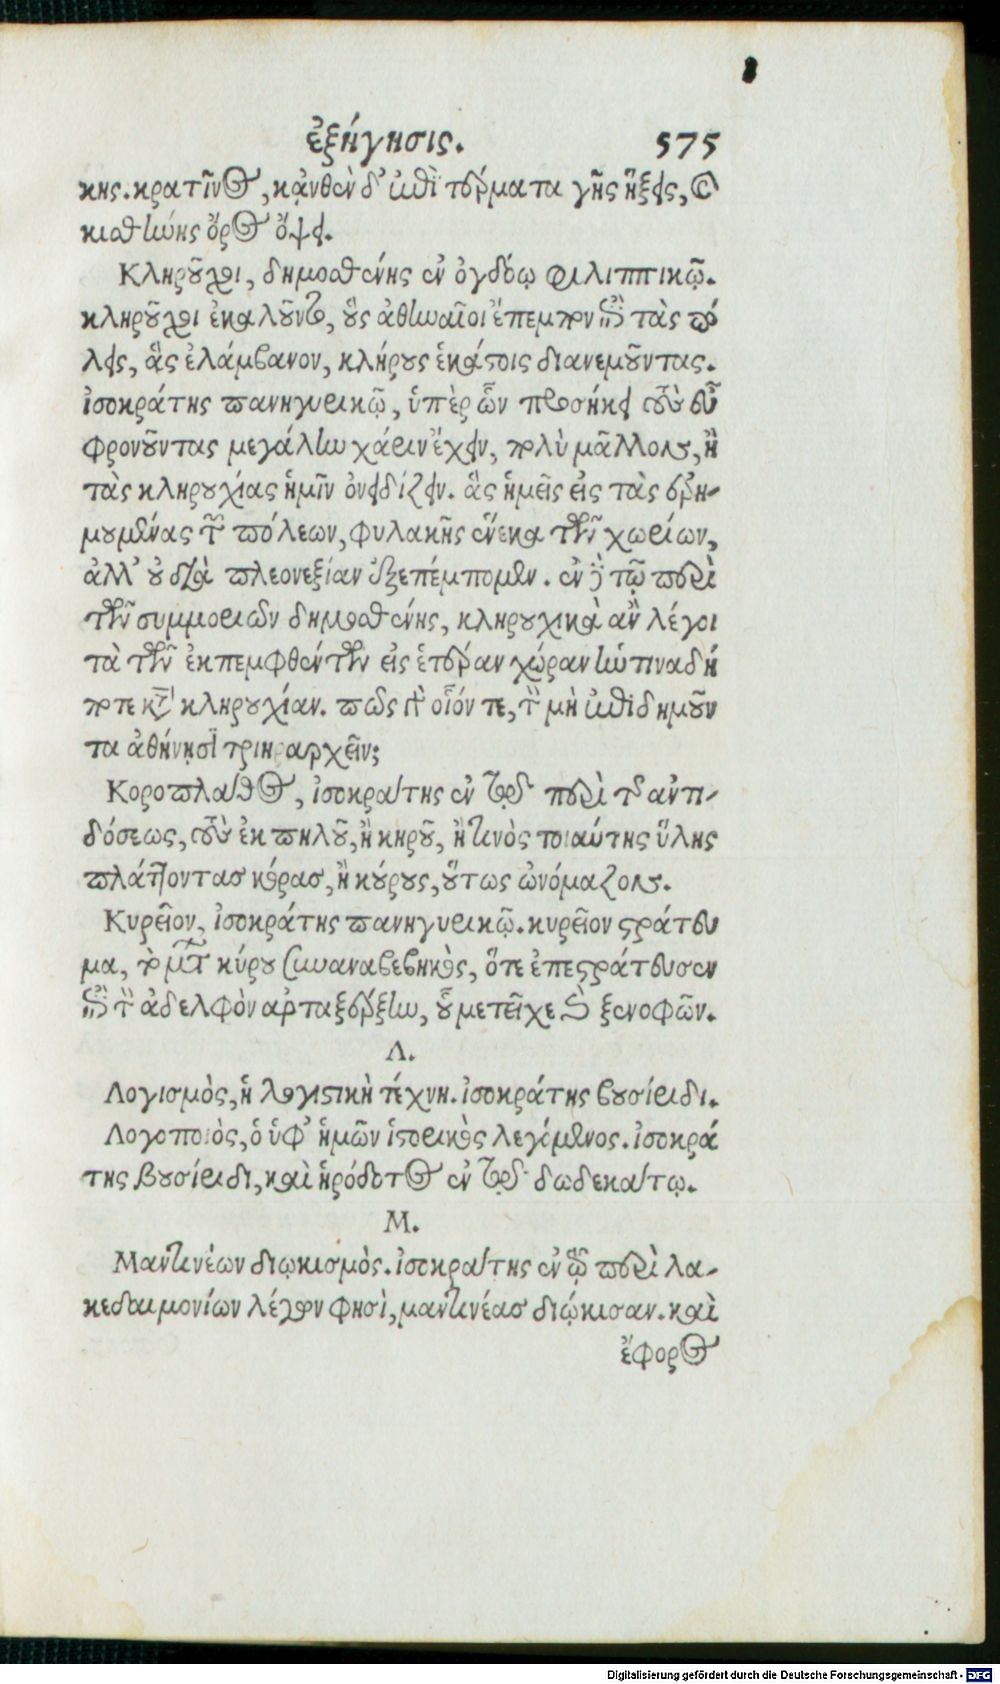 ἐξήγησις. 575
κης. κρατῖνος, κᾄνθεν δ' ἐπὶ τέρματα γῆς ἥξεις, καὶ
κισθήνης ὄρος ὄψει.
Κληροῦχοι, δημοσθένης ἐν ὀγδόῳ φιλιππικῷ.
κληροῦχοι ἐκαλοῦντο, οὓς ἀθηναῖοι ἔπεμπον ἐπὶ τὰς πό
λεις, ἃς ἐλάμβανον, κλήρους ἑκάστοις διανεμοῦντας.
ἰσοκράτης πανηγυρικῷ, ὑπὲρ ὧν προσήκει τοὺς εὖ
φρονοῦντας μεγάλην χάριν ἔχειν, πολὺ μᾶλλον, ἢ
τὰς κληρουχίας ἡμῖν ὀνειδίζειν. ἃς ἡμεῖς εἰς τὰς ἐρη-
μουμένας τῶν πόλεων, φυλακῆς ἕνεκα τῶν χωρίων,
ἀλλ' οὐ διὰ πλεονεξίαν ἐξεπέμπομεν. ἐν δὲ τῷ περὶ
τῶν συμμοριῶν δημοσθένης, κληρουχικὰ ἂν λέγοι
τὰ τῶν ἐκπεμφθέντων εἰς ἑτέραν χώραν ἡντιναδή
ποτε κατὰ κληρουχίαν. πῶς γὰρ οἷόν τε, τὸν μὴ ἐπιδημοῦν
τα ἀθήνῃσι τριηραρχεῖν;
Κοροπλάθος, ἰσοκράτης ἐν τῷ περὶ τῆς ἀντι-
δόσεως, τοὺς ἐκ πηλοῦ, ἢ κηροῦ, ἤ τινὸς τοιαύτης ὕλης
πλάττοντας κόρας, ἢ κούρους, οὕτως ὠνόμαζον.
Κυρεῖον, ἰσοκράτης πανηγυρικῷ. κυρεῖον στράτευ
μα, τὸ μετὰ κύρου συναναβεβηκὸς, ὅτε ἐπεστράτευσεν
ἐπὶ τὸν ἀδελφὸν ἀρταξέρξην, οὗ μετεῖχε καὶ ξενοφῶν.
Λ.
Λογισμὸς, ἡ λογιστικὴ τέχνη. ἰσοκράτης βουσίριδι.
Λογοποιὸς, ὁ ὑφ' ἡμῶν ἱστορικὸς λεγόμενος. ἰσοκρά
της βουσίριδι, καὶ ἡρόδοτος ἐν τῷ δωδεκάτῳ.
Μ.
Μαντινέων διῳκισμὸς. ἰσοκράτης ἐν τῷ περὶ λα-
κεδαιμονίων λέγων φησὶ, μαντινέας διῴκισαν. καὶ
ἔφορος
Digitalisierung gefördert durch die Deutsche Forschungsgemeinschaft - DFG